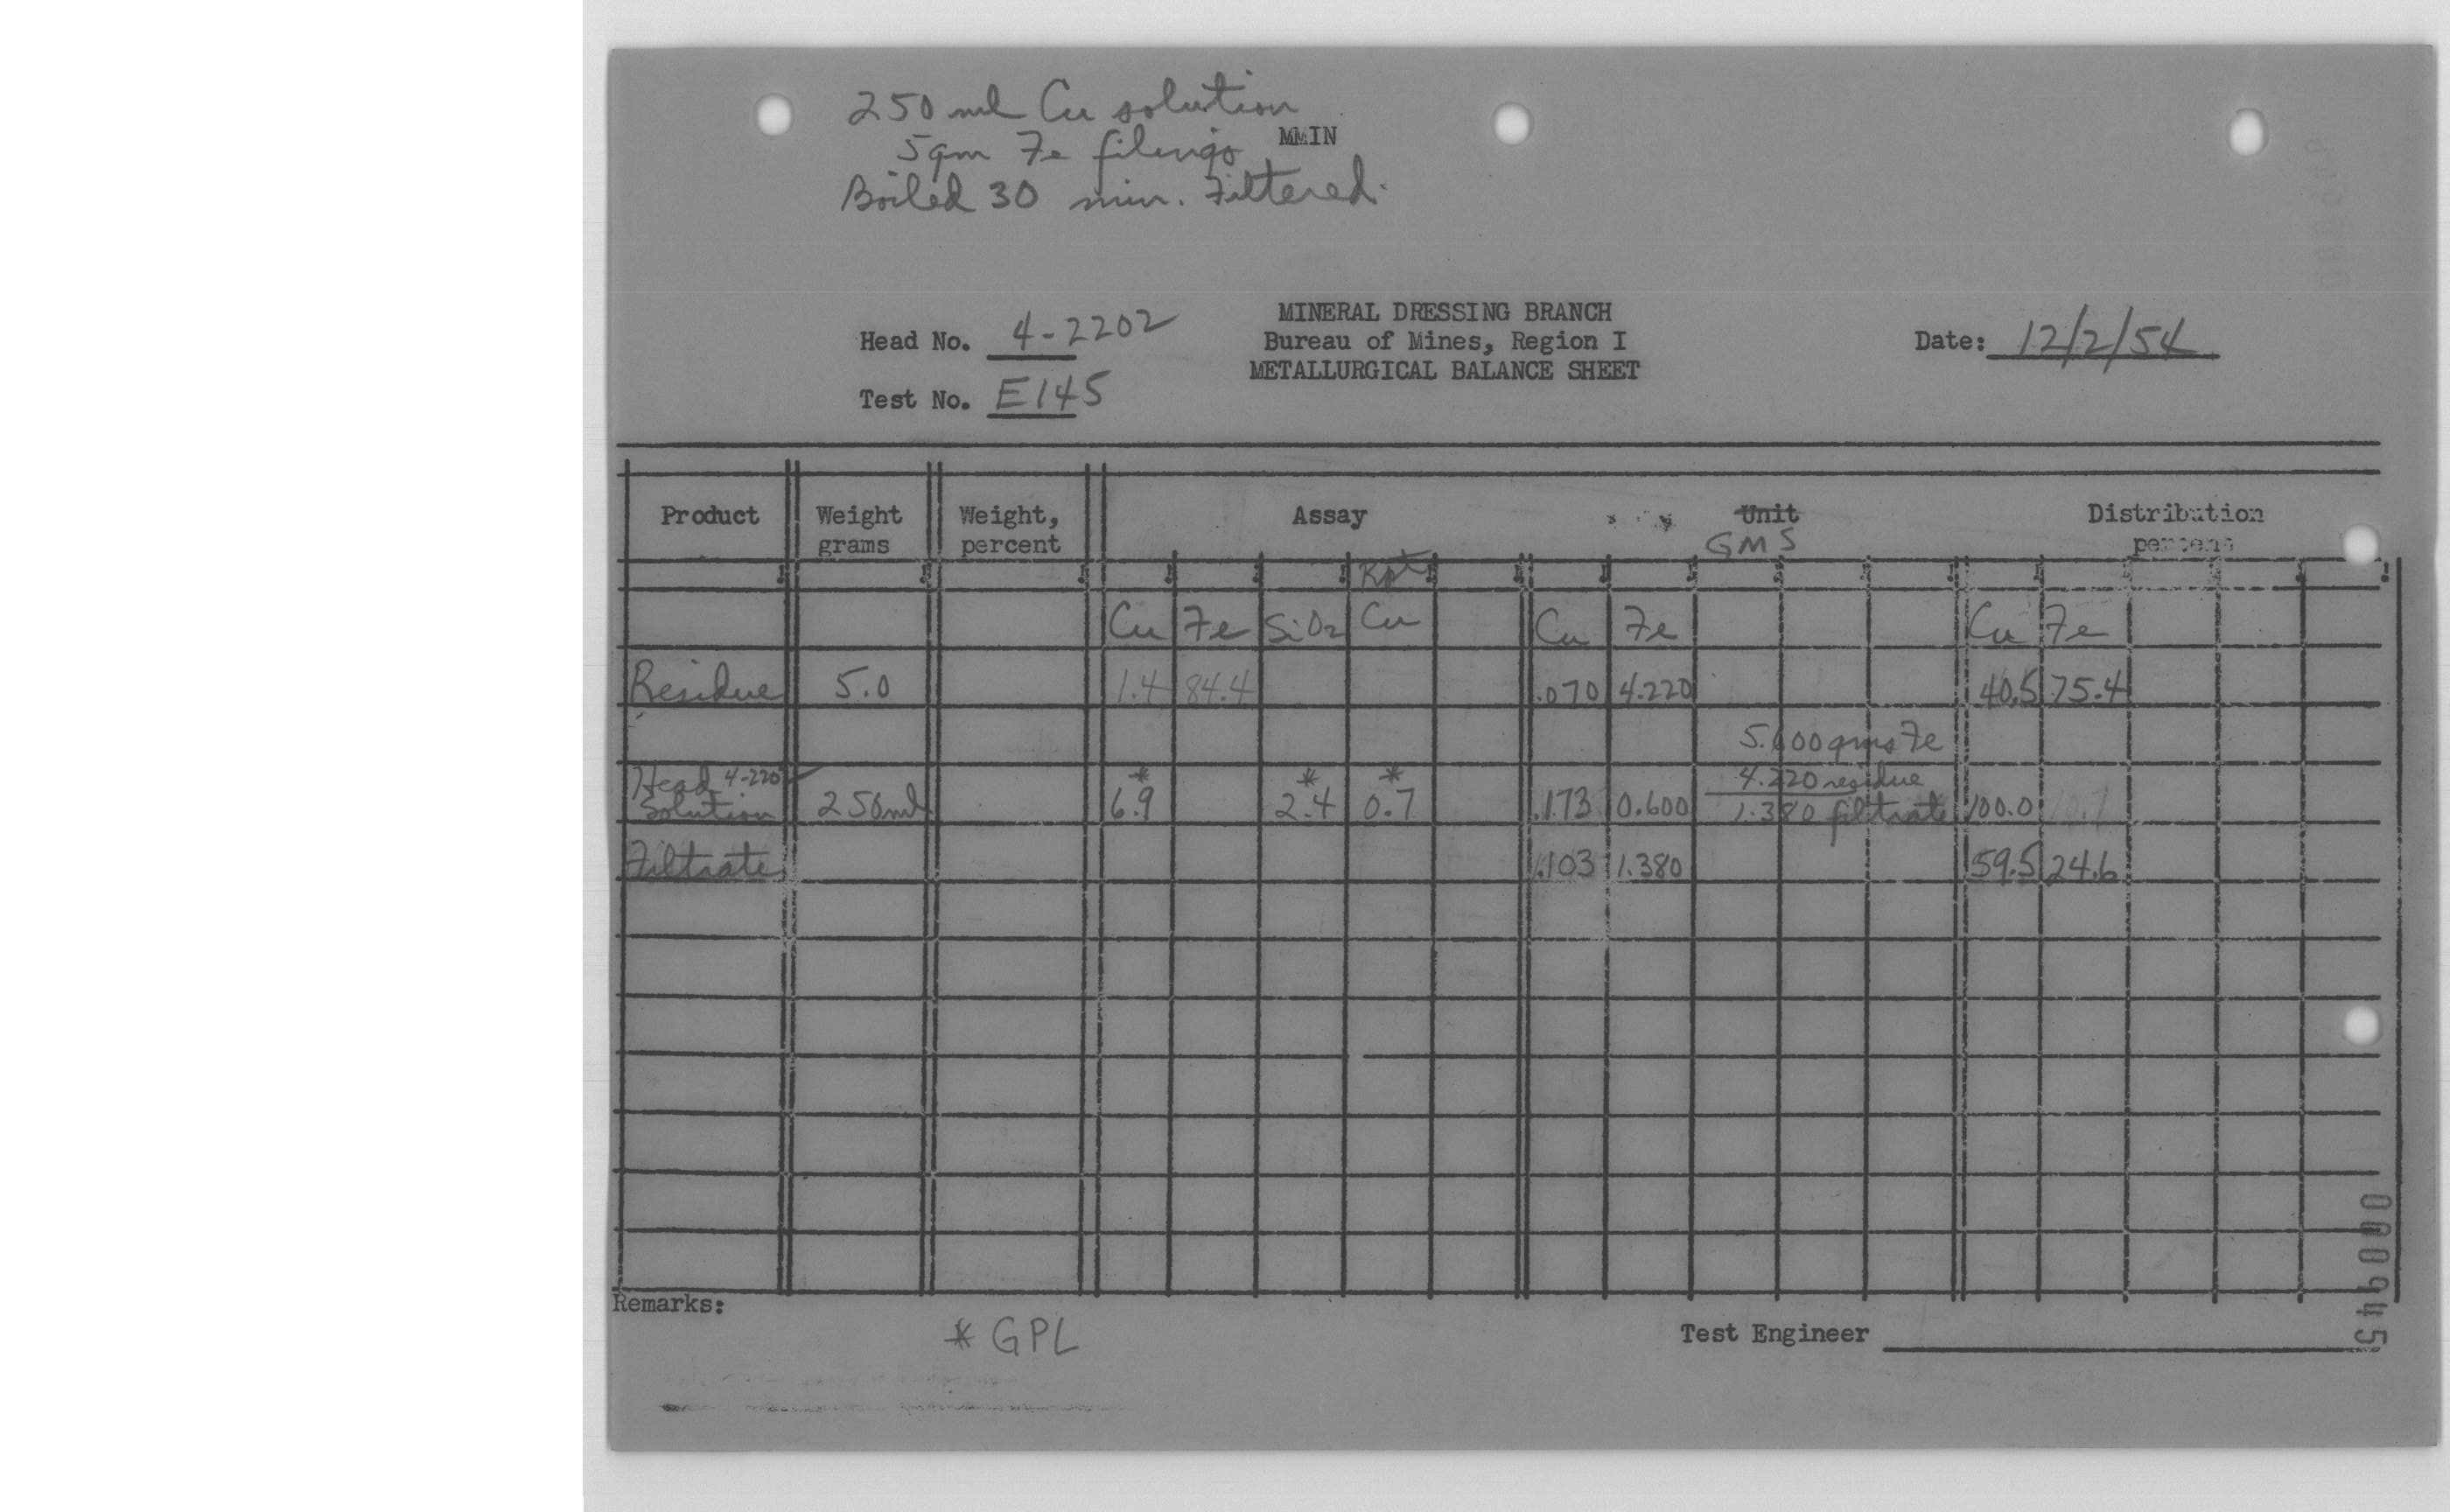 250 ml Cu solution
5gm Fe filings MMIN
Boiled 30 min. Filtered.
MINERAL DRESSING BRANCH
Head No. 4-2202 Bureau of Mines, Region I Date: 12/2/54
METALLURGICAL BALANCE SHEET
Test No. E145
Product Weight grams Weight, percent Assay Unit GMS Distribution percent
Rpt
Cu Fe SiO2 Cu Cu Fe Cu Fe
Residue 5.0 1.4 84.4 .070 4.220 40.5 75.4
5.600 gms Fe
Head 4-220 4.220 residue
Solution 250ml *6.9 *2.4 *0.7 .173 0.600 1.380 filtrate 100.0
Filtrate .103 1.380 59.5 24.6
Remarks:
* GPL
Test Engineer
000945